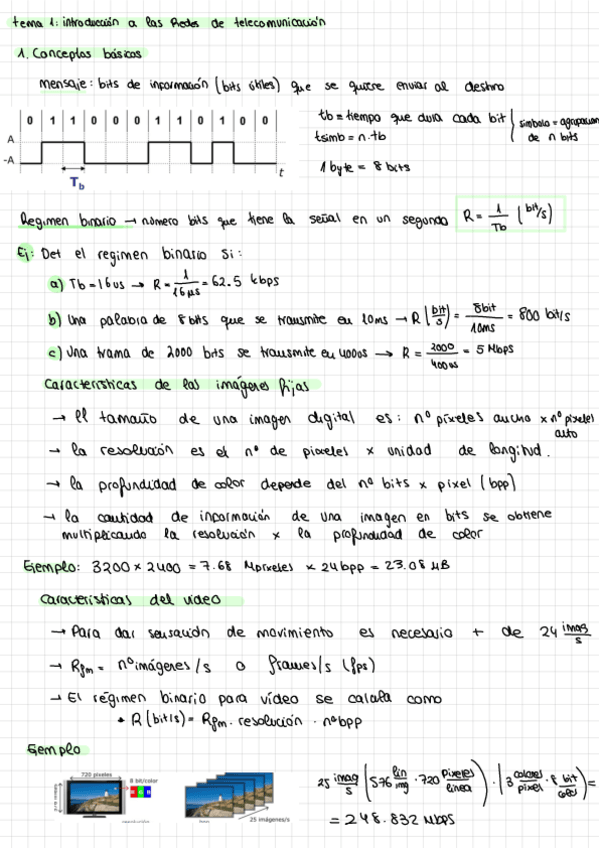 tema 1: introducción a las Redes de telecomunicación
1. Conceptos básicos
mensaje: bits de información (bits útiles) que se quiere enviar al destino
0 1 1 0 0 0 1 1 0 1 0 0
A
-A
t
Tb
tb = tiempo que dura cada bit
tsimb = n · tb
símbolo = agrupación de n bits
1 byte = 8 bits
Regimen binario → número bits que tiene la señal en un segundo R = 1/Tb (bit/s)
Ej: Det el regimen binario si:
a) Tb = 16us → R = 1/16µs = 62.5 kbps
b) Una palabra de 8 bits que se transmite en 10ms → R (bit/s) = 8bit/10ms = 800 bit/s
c) Una trama de 2000 bits se transmite en 400us → R = 2000/400us = 5 Mbps
Características de las imágenes fijas
→ El tamaño de una imagen digital es: nº píxeles ancho x nº píxeles alto
→ la resolución es el nº de pixeles x unidad de longitud.
→ la profundidad de color depende del nº bits x pixel (bpp)
→ la cantidad de información de una imagen en bits se obtiene
multiplicando la resolución x la profundidad de color
Ejemplo: 3200 x 2400 = 7.68 Mpixeles x 24bpp = 23.08 MB
Características del video
→ Para dar sensación de movimiento es necesario + de 24 imag/s
→ Rfm = nº imágenes/s o frames/s (fps)
→ El régimen binario para vídeo se calcula como
• R (bit/s) = Rfm · resolución · nº bpp
Ejemplo
720 pixeles
8 bit/color
25 imágenes/s
25 imag/s (576 lin/img · 720 pixeles/linea) · (3 colores/pixel · 8 bit/color) =
= 248.832 Mbps